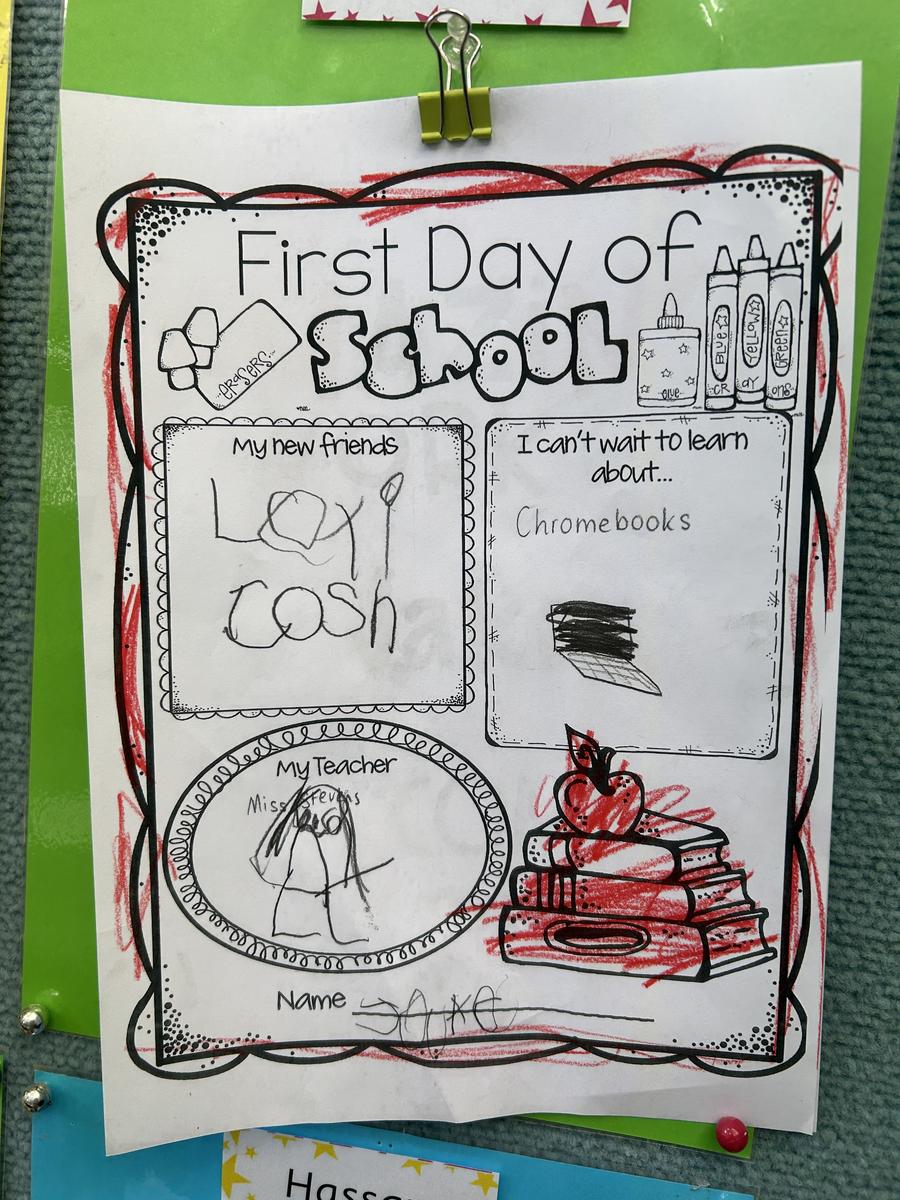 First Day of
School
erasers
glue
BLUE
YELLOW
Green
CR
ay
ons
My new friends
Loxi
Josh
I can't wait to learn
about...
Chromebooks
My Teacher
Miss Stevens
Name Jake